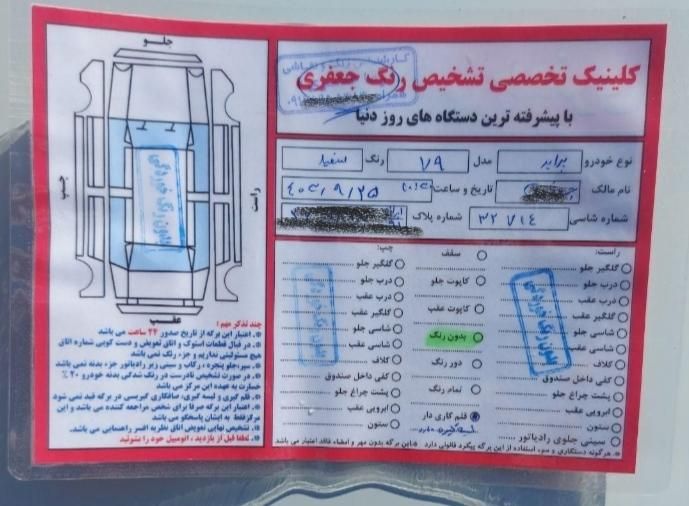 کلینیک تخصصی تشخیص رنگ جعفری
با پیشرفته ترین دستگاه های روز دنیا
نوع خودرو پراید مدل ۷۹ رنگ سفید
نام مالک تاریخ و ساعت
شماره شاسی ۳۲۷۱۴ شماره پلاک
جلو
چپ
راست
عقب
بدون رنگ خوردگی
راست:
گلگیر جلو
درب جلو
درب عقب
گلگیر عقب
شاسی جلو
شاسی عقب
کلاف
کفی داخل صندوق
پشت چراغ جلو
ابرویی عقب
ستون
سینی جلوی رادیاتور
بدون رنگ خوردگی
سقف
کاپوت جلو
کاپوت عقب
بدون رنگ
دور رنگ
تمام رنگ
قلم کاری دار
چپ:
گلگیر جلو
درب جلو
درب عقب
گلگیر عقب
شاسی جلو
شاسی عقب
کلاف
کفی داخل صندوق
پشت چراغ جلو
ابرویی عقب
ستون
بدون رنگ خوردگی
* هرگونه دستکاری و سوء استفاده از این برگه پیگرد قانونی دارد * این برگه بدون مهر و امضاء فاقد اعتبار می باشد
چند تذکر مهم :
*. اعتبار این برگه از تاریخ صدور ۲۴ ساعت می باشد
*. در قبال قطعات استوک و اتاق تعویض و دست کوبی شماره اتاق
هیچ مسئولیتی نداریم و جزء رنگ نمی باشد
*. سپر،جلو پنجره، رکاب و سینی زیر رادیاتور جزء بدنه نمی باشد
*. در صورت تشخیص نادرست در رنگ شدگی بدنه خودرو ۲۰٪
خسارت به عهده این مرکز می باشد
*. قلم گیری و لیسه گیری، صافکاری گیریسی در برگه قید نمی شود
*. اعتبار این برگه صرفا برای شخص مراجعه کننده می باشد و این
مرکز فقط به ایشان پاسخگو می باشد
*. تشخیص نهایی تعویض اتاق نظریه افسر راهنمایی می باشد.
*. لطفا قبل از بازدید ، اتومبیل خود را بشوئید